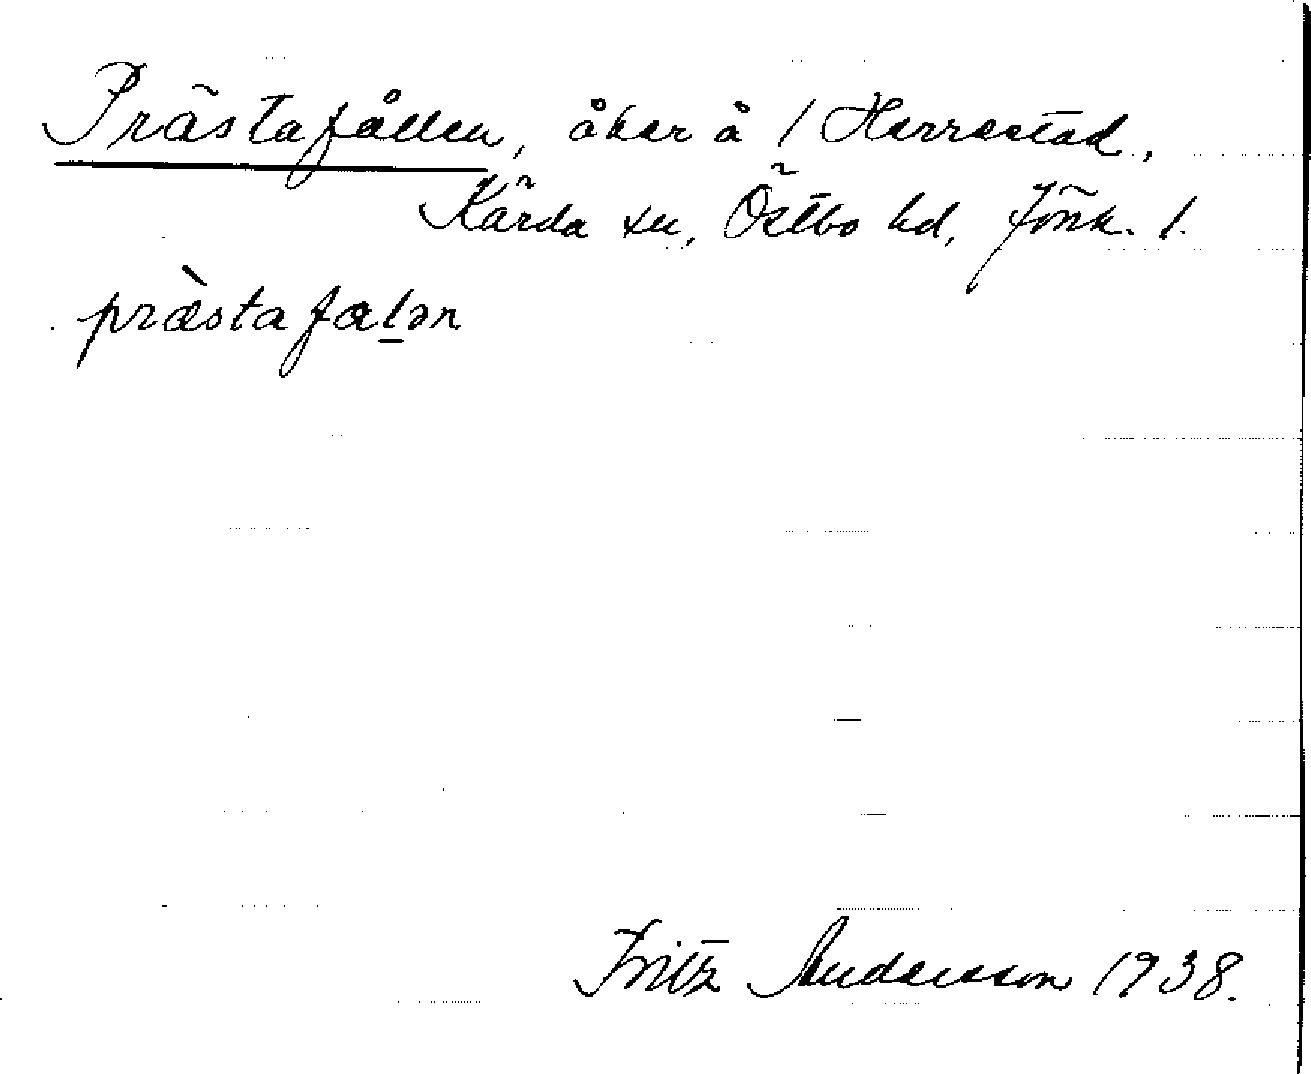 Prästafållen, åker å / Herrestad,
Kärda sn, Östbo hd, Jönk. l.
præ̀stafal̲ən
Fritz Andersson 1938.